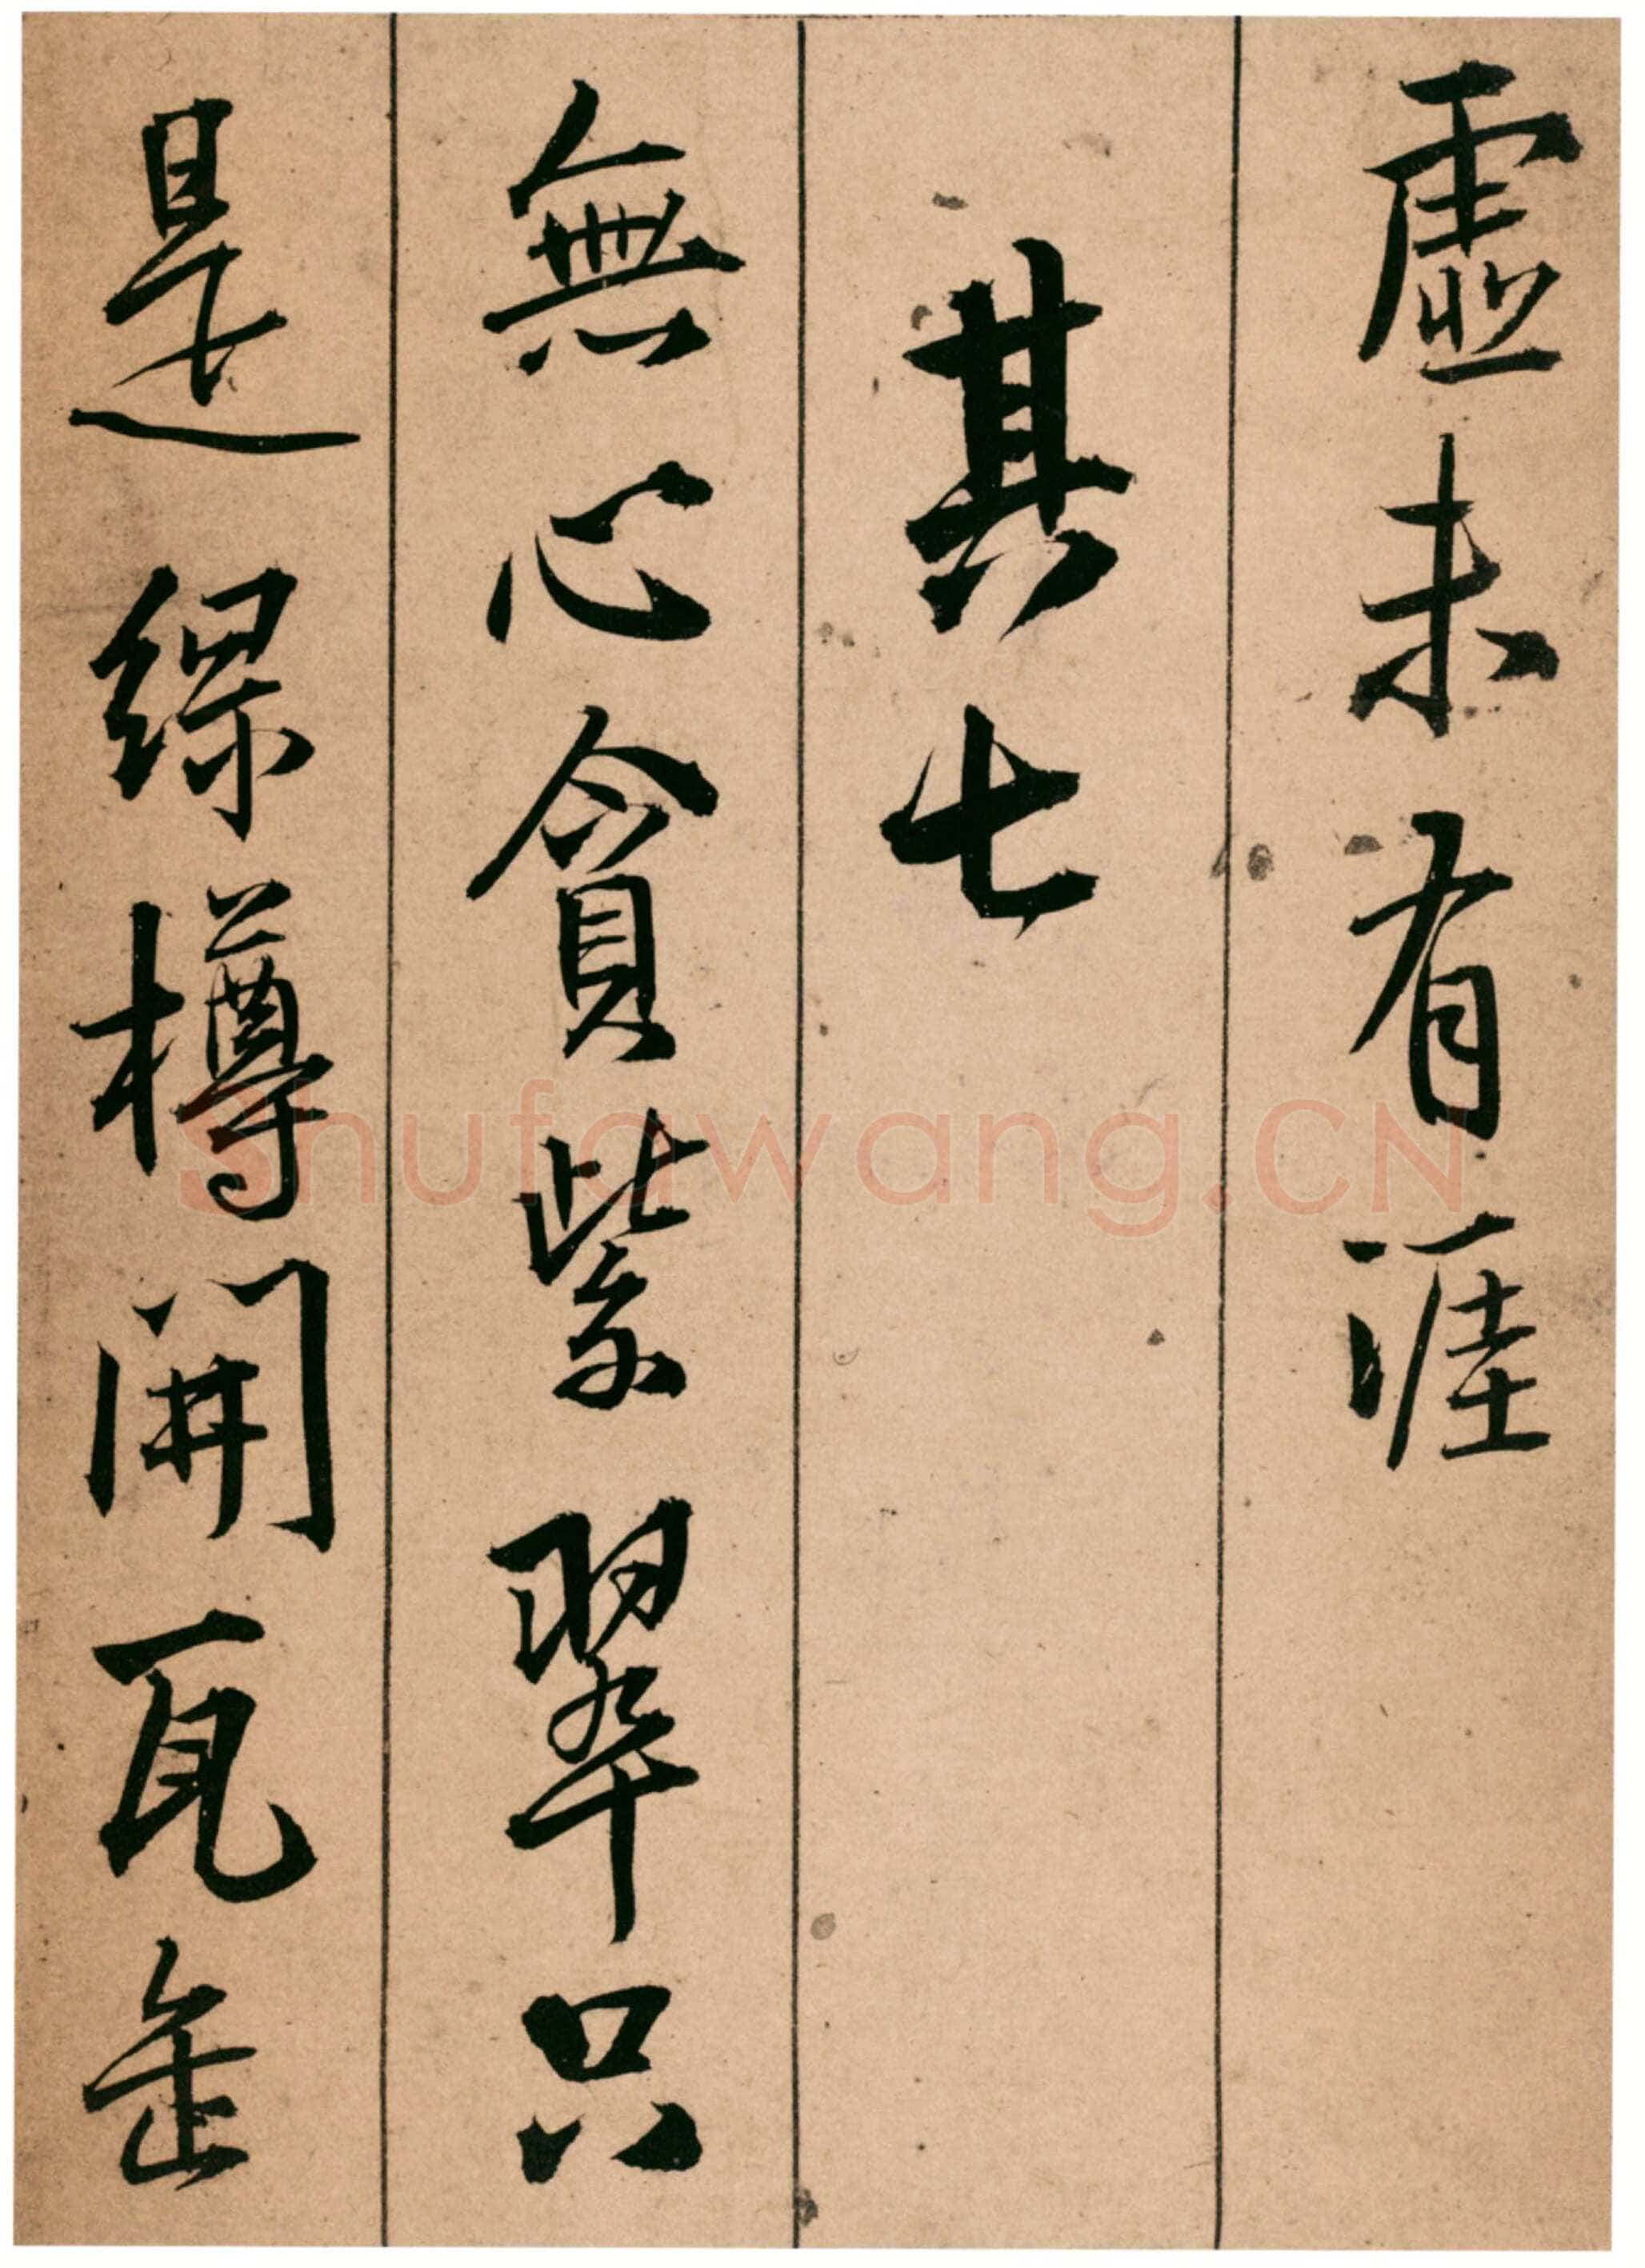 虛未有涯
其七
無心貪紫翠只
是綠樽開瓦缶
Shufawang.CN